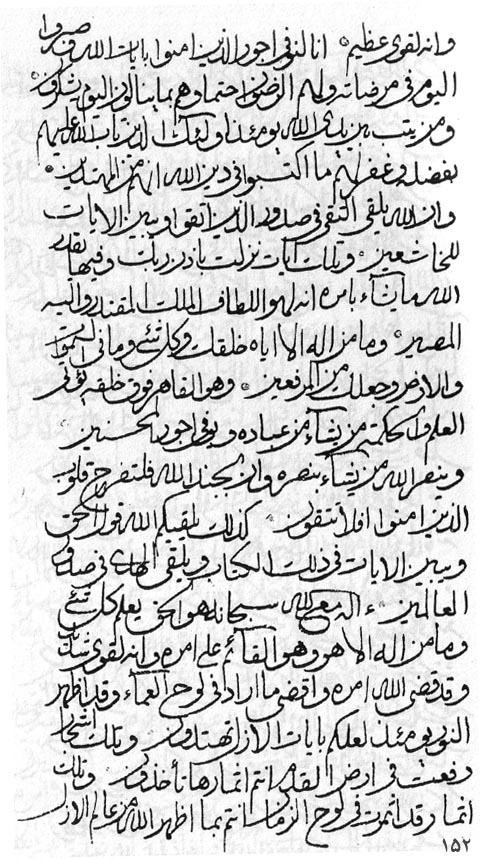 وانه لقوی عظیم انا لنوفی اجور الذین امنوا بایات الله وصبروا
الیوم فی مرضاته ولهم الرضوان حتما وهم بما ینالون الیوم یشکرون
ومن یتب بین یدی الله یومئذ اولئک الذین تاب الله علیهم
بفضله وغفر لهم ما اکتسبوا فی دین الله انهم من المهتدین
وان الله یلقی التقی فی صدور الذین اتقوا ویبین الایات
للخاشعین وتلک آیات نزلت باذن ربک وفیها یقدر
الله ما یشآء بامره انه لهو اللطاف الملک المقتدر والیه
المصیر وما من اله الا ایاه خلقک وکل شئ وما فی السموات
والارض وجعلک من المرفعین وهو القاهر فوق خلقه یؤتی
العلم والحکمة من یشآء من عباده ویوفی اجور المحسنین
وینصر الله من یشآء بنصره وان بجند الله فلتفرح قلوب
الذین امنوا افلا تتقون کذلک یلقیکم الله قول الحق
ویبین الایات فی ذلک الکتاب ویلقی الهدی فی صدور
العالمین ءاله مع الله سبحانه هو الحق یعلم کل شئ
وما من اله الا هو وهو القآئم علی امره وانه لقوی
وقد قضی الله امره واقضی ما اراد فی لوح العمآء وقد اظهر
النور یومئذ لعلکم بایات الازل تهتدون وتلک اشجار
رفعت فی ارض القدس انتم اثمارها تأخذون وتلک
اثمار قد اثمرت فی لوح الزمان انتم بما اظهر الله من عالم الازل
١٥٢